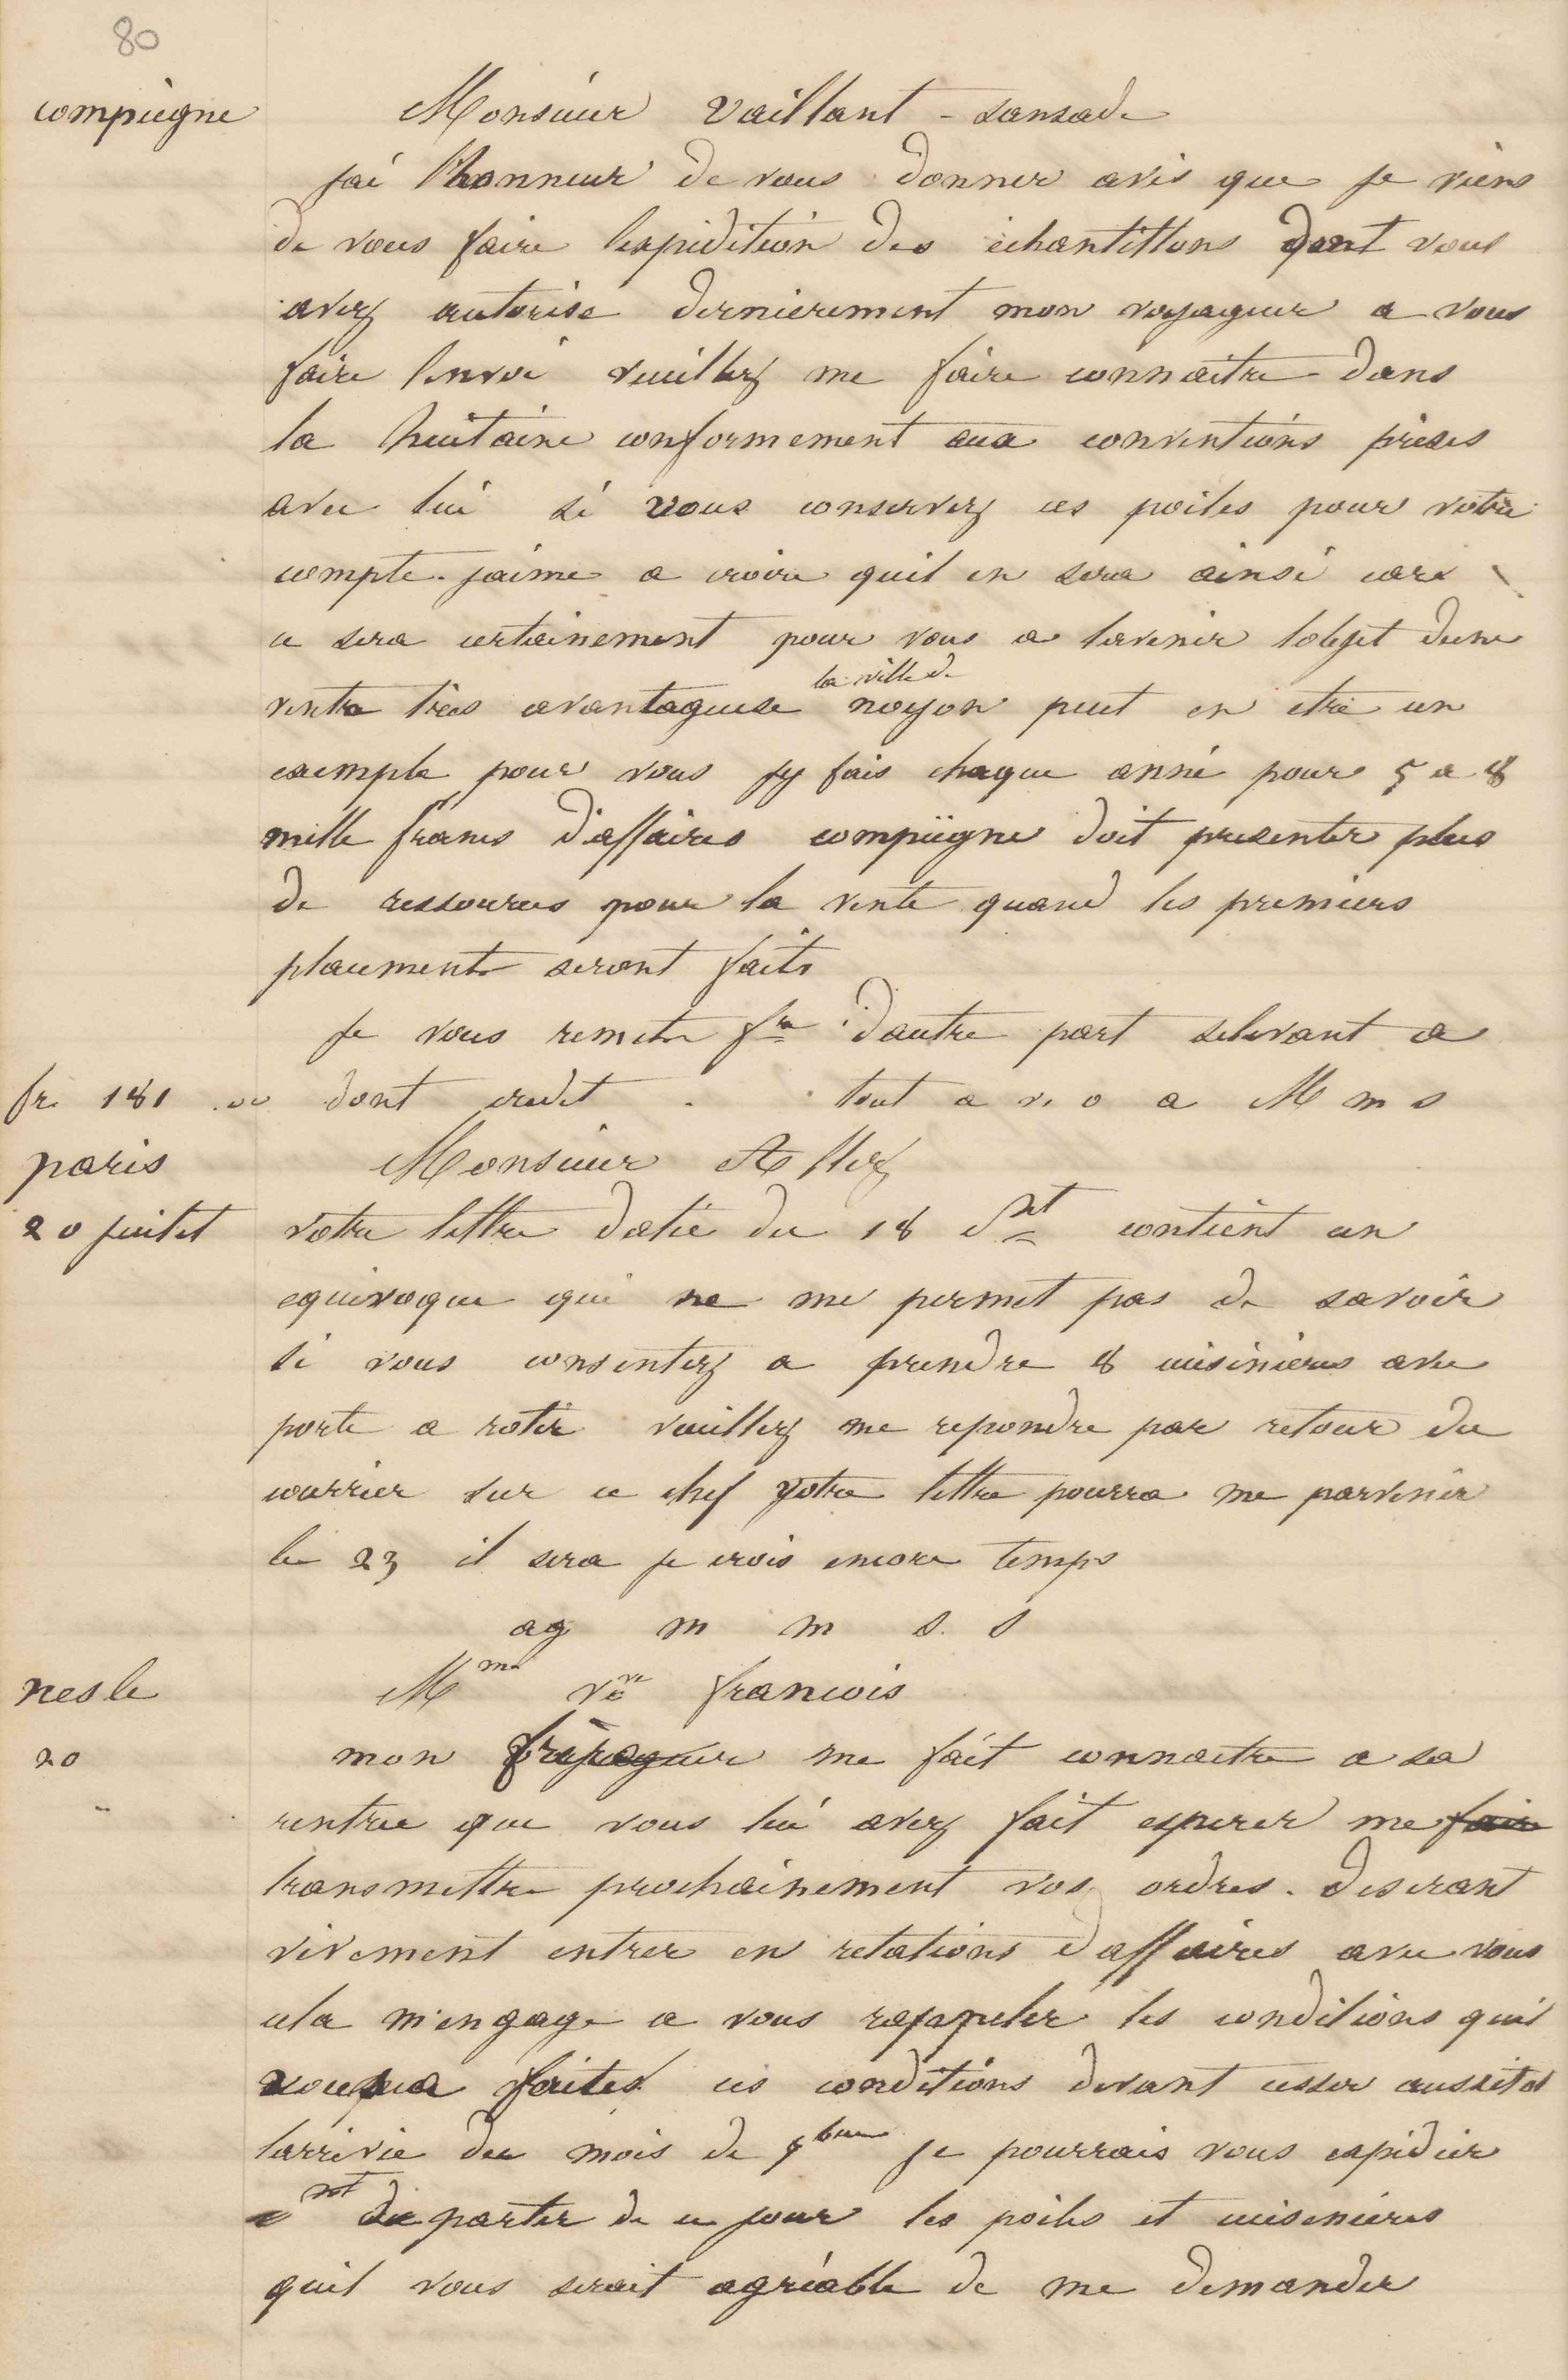 80
compiegne Monsieur Vaillant - sansade
jai l'honneur de vous donner avis que je viens
de vous faire lexpidition des echantillons dont vous
avez autorise dernierement mon voyageur a vous
faire lenvoi veuillez me faire connaitre dans
la huitaine conformement aux conventions prises
avec lui si vous conservez ces poiles pour votre
compte. jaime a croire quil en sera ainsi car
ce sera certainement pour vous a lavenir lobjet dune
la ville de
vente tres avantageuse noyon peut en etre un
exemple pour vous jy fais chaque anné pour 5 a 8
mille francs d'affaires compiegne doit presenter plus
de ressources pour la vente quand les premiers
placements seront faits
je vous remets fre dautre part selevant a
fr. 181 .00 dont credit . tout a v. o a M m s
paris Monsieur Allez
20 juilet votre lettre datée du 18 ct contient un
equivoque qui ne me permet pas de savoir
si vous consentez a prendre 8 cuisinieres avec
porte a rotir veuillez me repondre par retour du
courrier sur ce chef votre lettre pourra me parvenir
le 23 il sera je crois encore temps
ag m m s. s
nesle Mme vve francois
20 mon me fait connaitre a sa
rentree que vous lui avez fait esperer me faire
transmettre prochainement vos ordres. desirant
vivement entrer en relations daffaires avec vous
cela m'engage a vous rappeler les conditions quil
vous a faites ces conditions devant cesser aussitot
larrivée du mois de bre je pourrais vous expédier
de parter de ce jour les poiles et cuisinieres
quil vous serait agréable de me demander